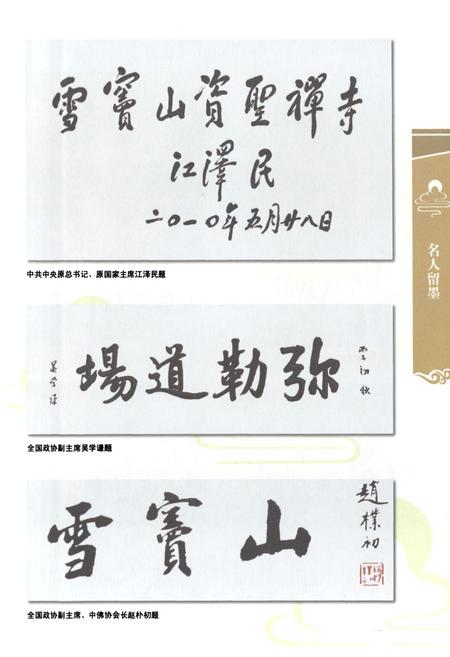 雪竇山資聖禪寺
江澤民
二〇一〇年五月廿八日
中共中央原总书记、原国家主席江泽民题
名人留墨
弥勒道場
丙子初秋
吴学谦
全国政协副主席吴学谦题
雪竇山
趙樸初
全国政协副主席、中佛协会长赵朴初题